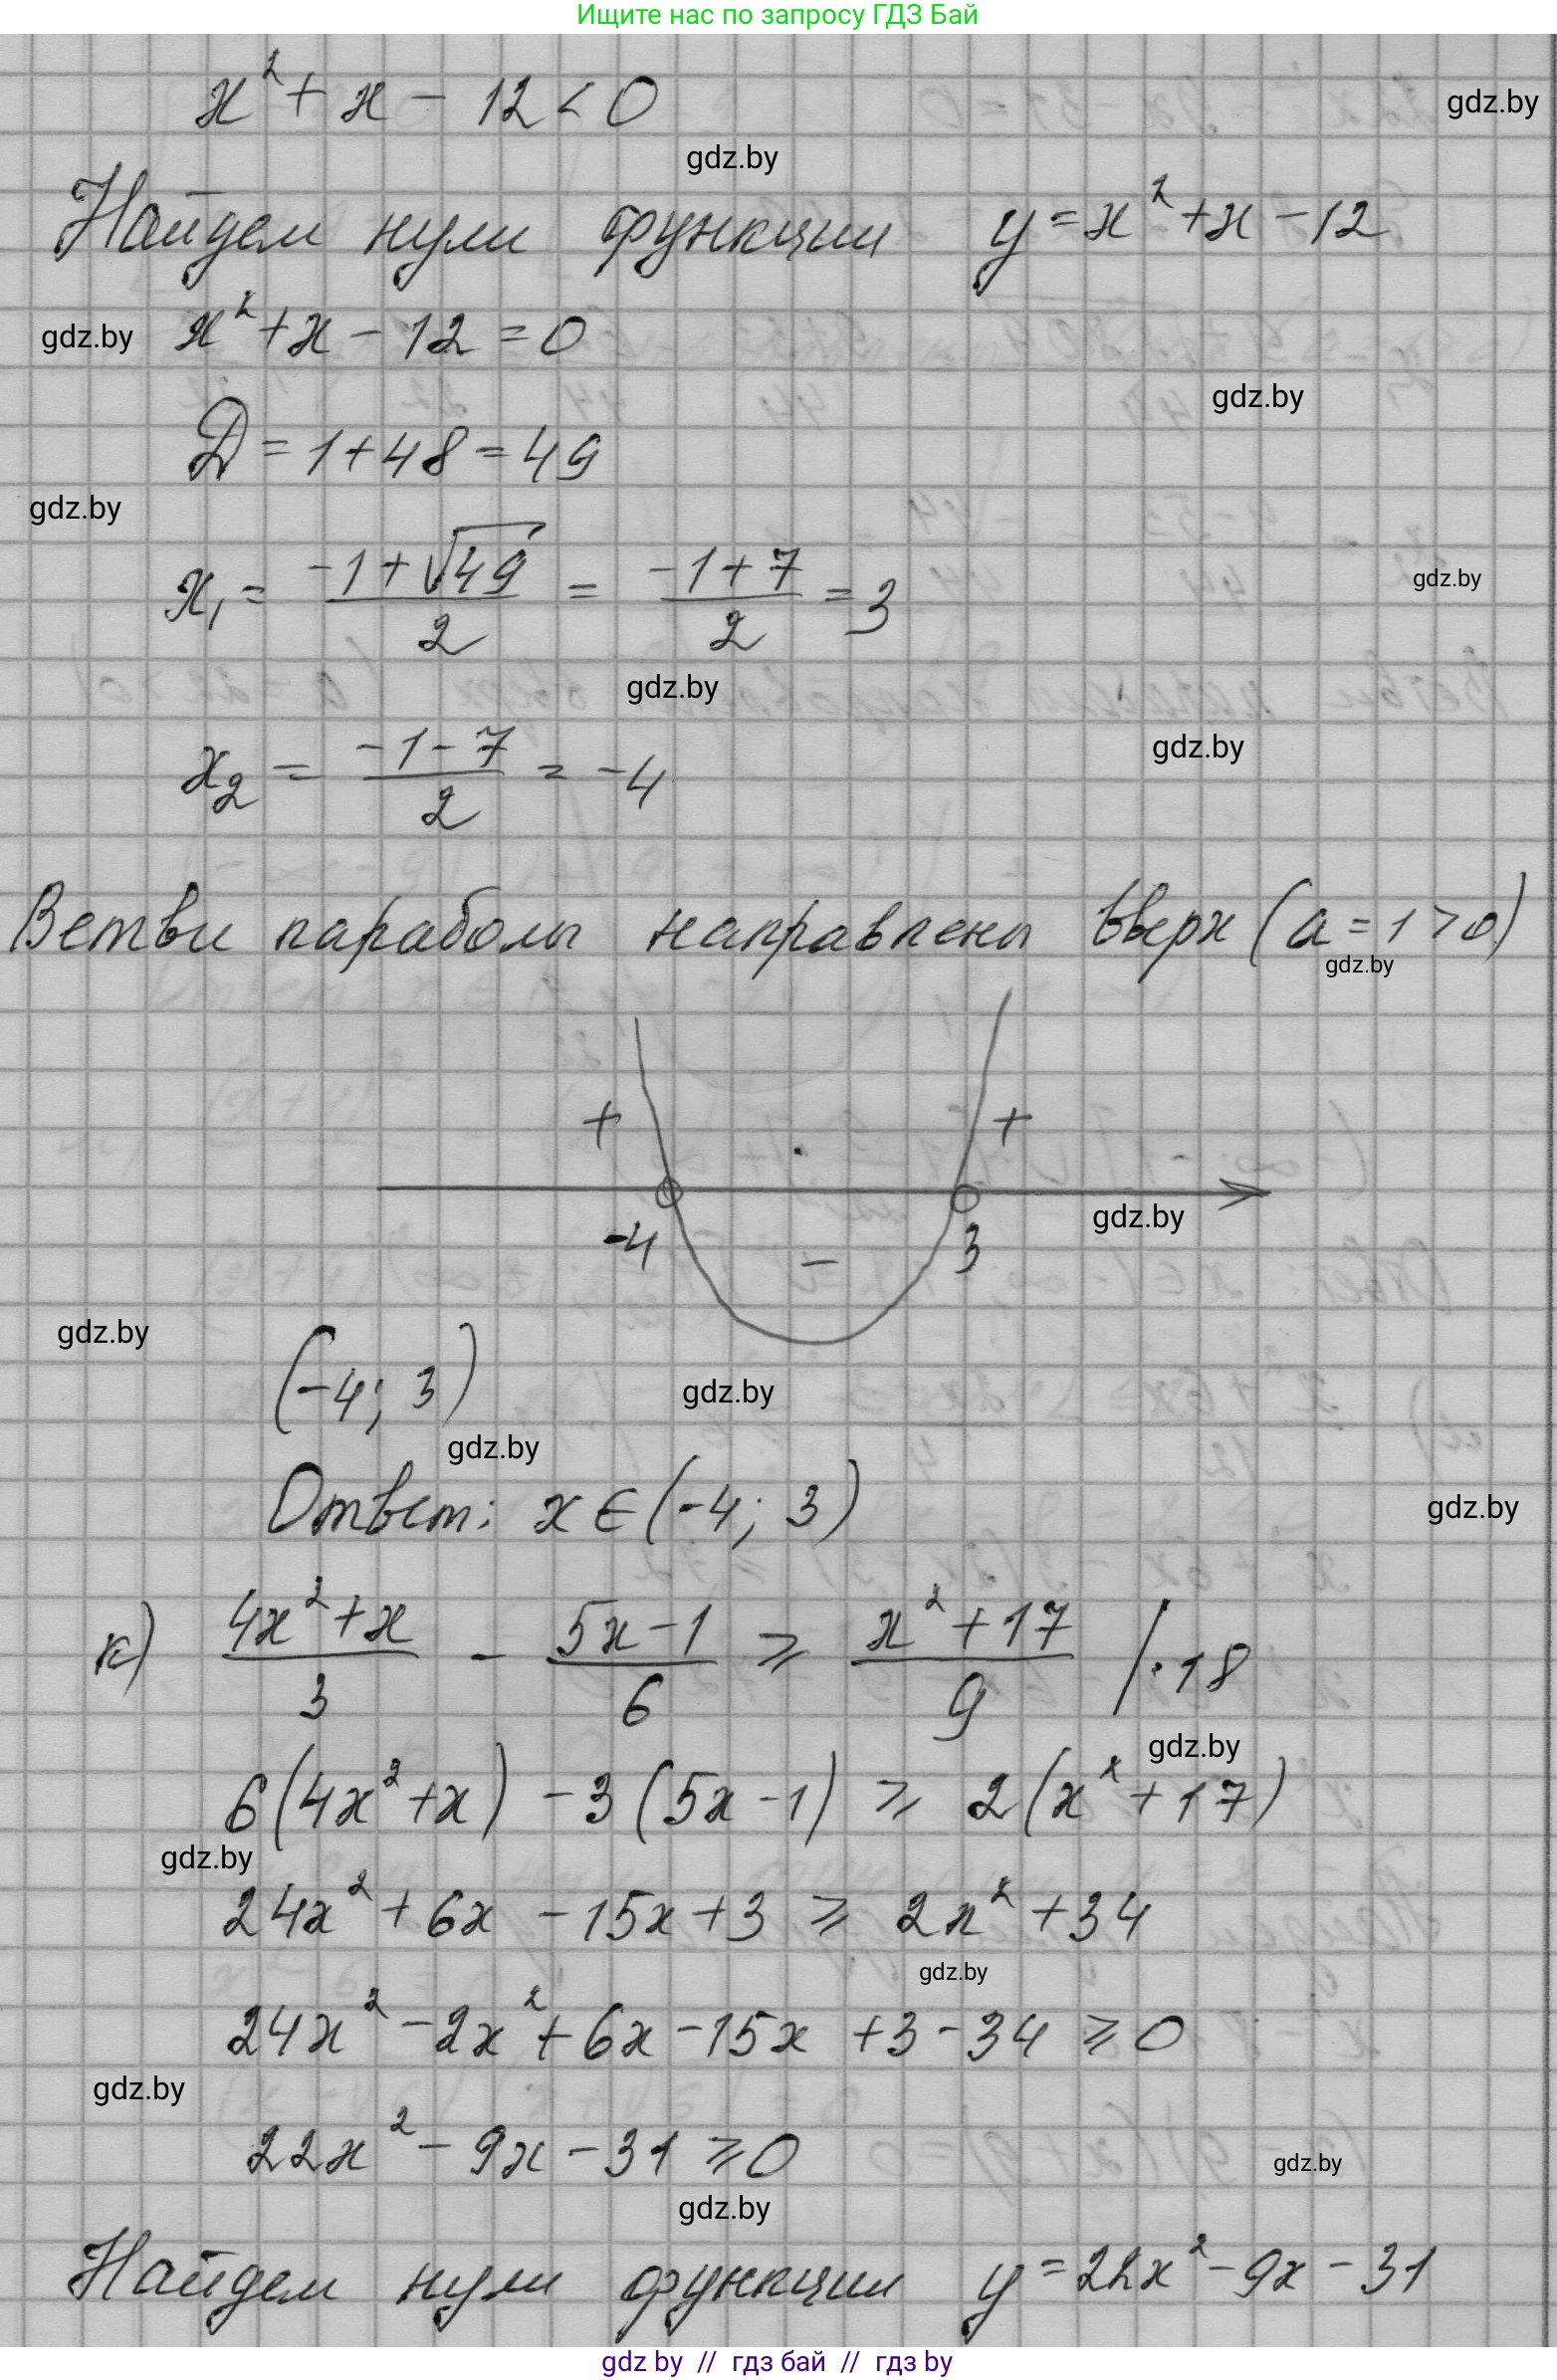 Ищите нас по запросу ГДЗ Бай
x² + x - 12 < 0
gdz.by
gdz.by
Найдем нули функции y = x² + x - 12
gdz.by
x² + x - 12 = 0
gdz.by
D = 1 + 48 = 49
gdz.by
x₁ = (-1 + √49)/2 = (-1 + 7)/2 = 3
gdz.by
gdz.by
x₂ = (-1 - 7)/2 = -4
gdz.by
Ветви параболы направлены вверх (a = 1 > 0)
gdz.by
+ +
-4 - 3
gdz.by
gdz.by
(-4; 3)
gdz.by
gdz.by
Ответ: x ∈ (-4; 3)
gdz.by
к) (4x² + x)/3 - (5x - 1)/6 ⩾ (x² + 17)/9 / · 18
gdz.by
6(4x² + x) - 3(5x - 1) ⩾ 2(x² + 17)
gdz.by
24x² + 6x - 15x + 3 ⩾ 2x² + 34
gdz.by
24x² - 2x² + 6x - 15x + 3 - 34 ⩾ 0
gdz.by
22x² - 9x - 31 ⩾ 0
gdz.by
gdz.by
Найдем нули функции y = 22x² - 9x - 31
gdz by // гдз бай // gdz by